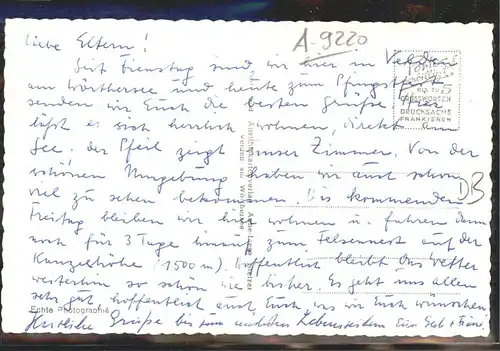 Liebe Eltern!
A-9220
Seit Dienstag sind wir hier in Velden
am Wörthersee und heute zum Pfingstfest
senden wir Euch die besten Grüße. Hier
läßt es sich herrlich wohnen, direkt am
See. der Pfeil zeigt unser Zimmer. Von der
schönen Umgebung haben wir auch schon
viel zu sehen bekommen. bis kommenden
Freitag bleiben wir hier wohnen u. fahren dann
noch für 3 Tage hinauf zum Felsennest auf der
Kanzelhöhe (1500 m). Hoffentlich bleibt das Wetter
weiterhin so schön wie bisher. Es geht uns allen
sehr gut, hoffentlich auch Euch, was wir Euch wünschen.
Herzliche Grüße bis zum nächsten Lebenszeichen Eure
BIS ZU 5
GRUSSWORTEN
DRUCKSACHE
FRANKIEREN
DB
Echte Photographie